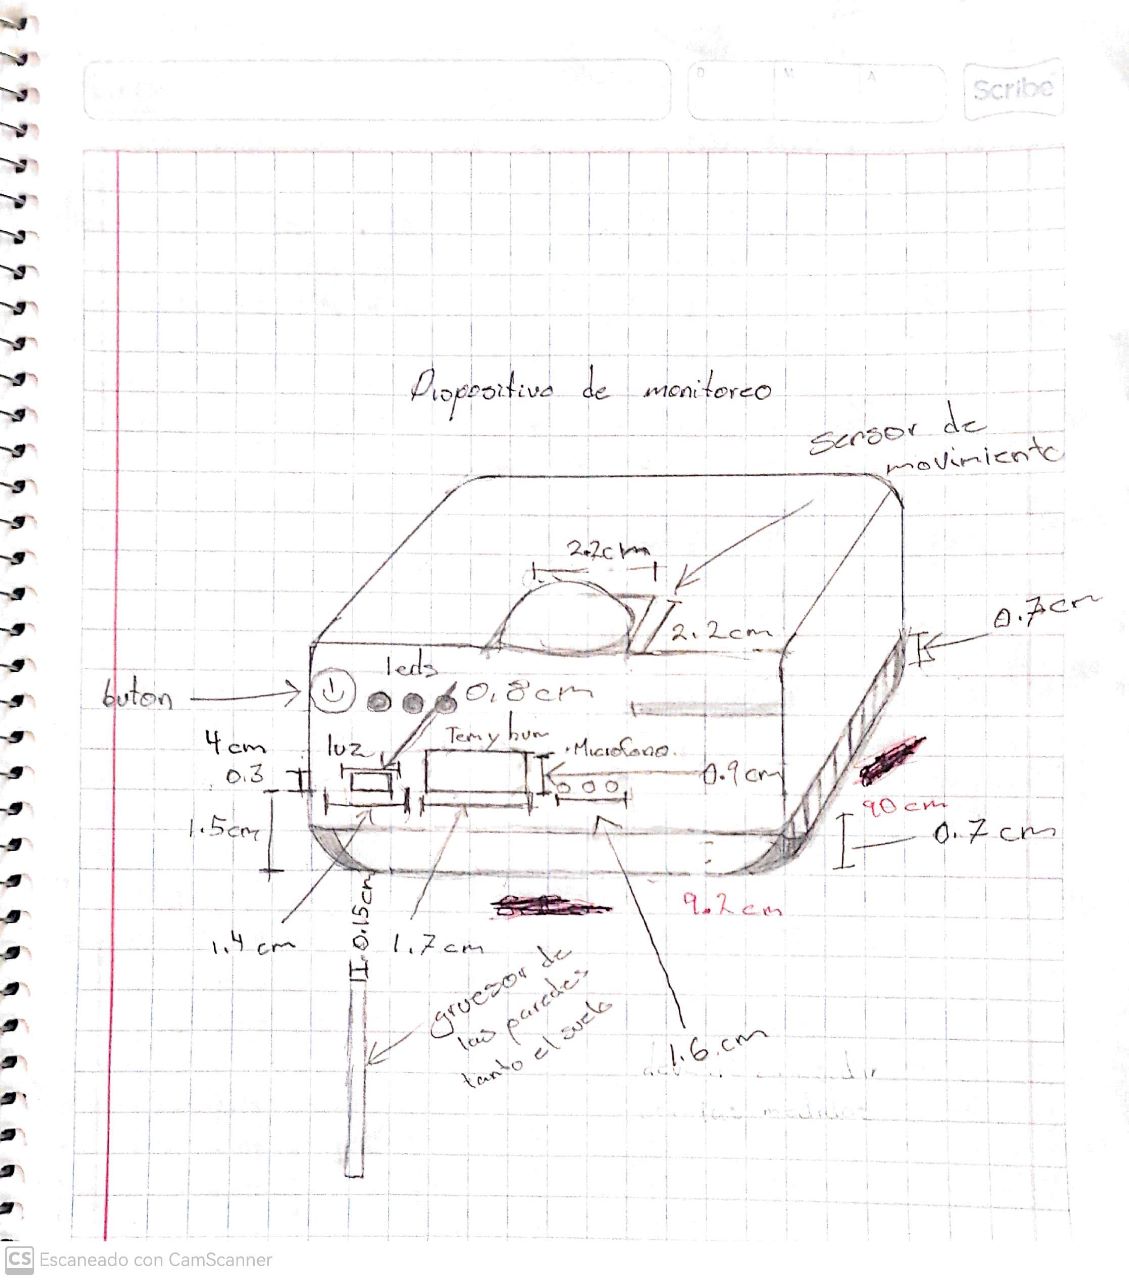 Scribe
D M A
Dispositivo de monitoreo
sensor de
movimiento
2.2cm
0.7cm
2.2cm
leds
buton
0.8cm
4cm
luz
Tem y hum
Microfono
0.3
0.9cm
90 cm
1.5cm
0.7 cm
9.2 cm
0.15cm
1.4 cm
1.7 cm
gruesor de
las paredes
tanto el suelo
1.6 cm
las medidas
CS Escaneado con CamScanner